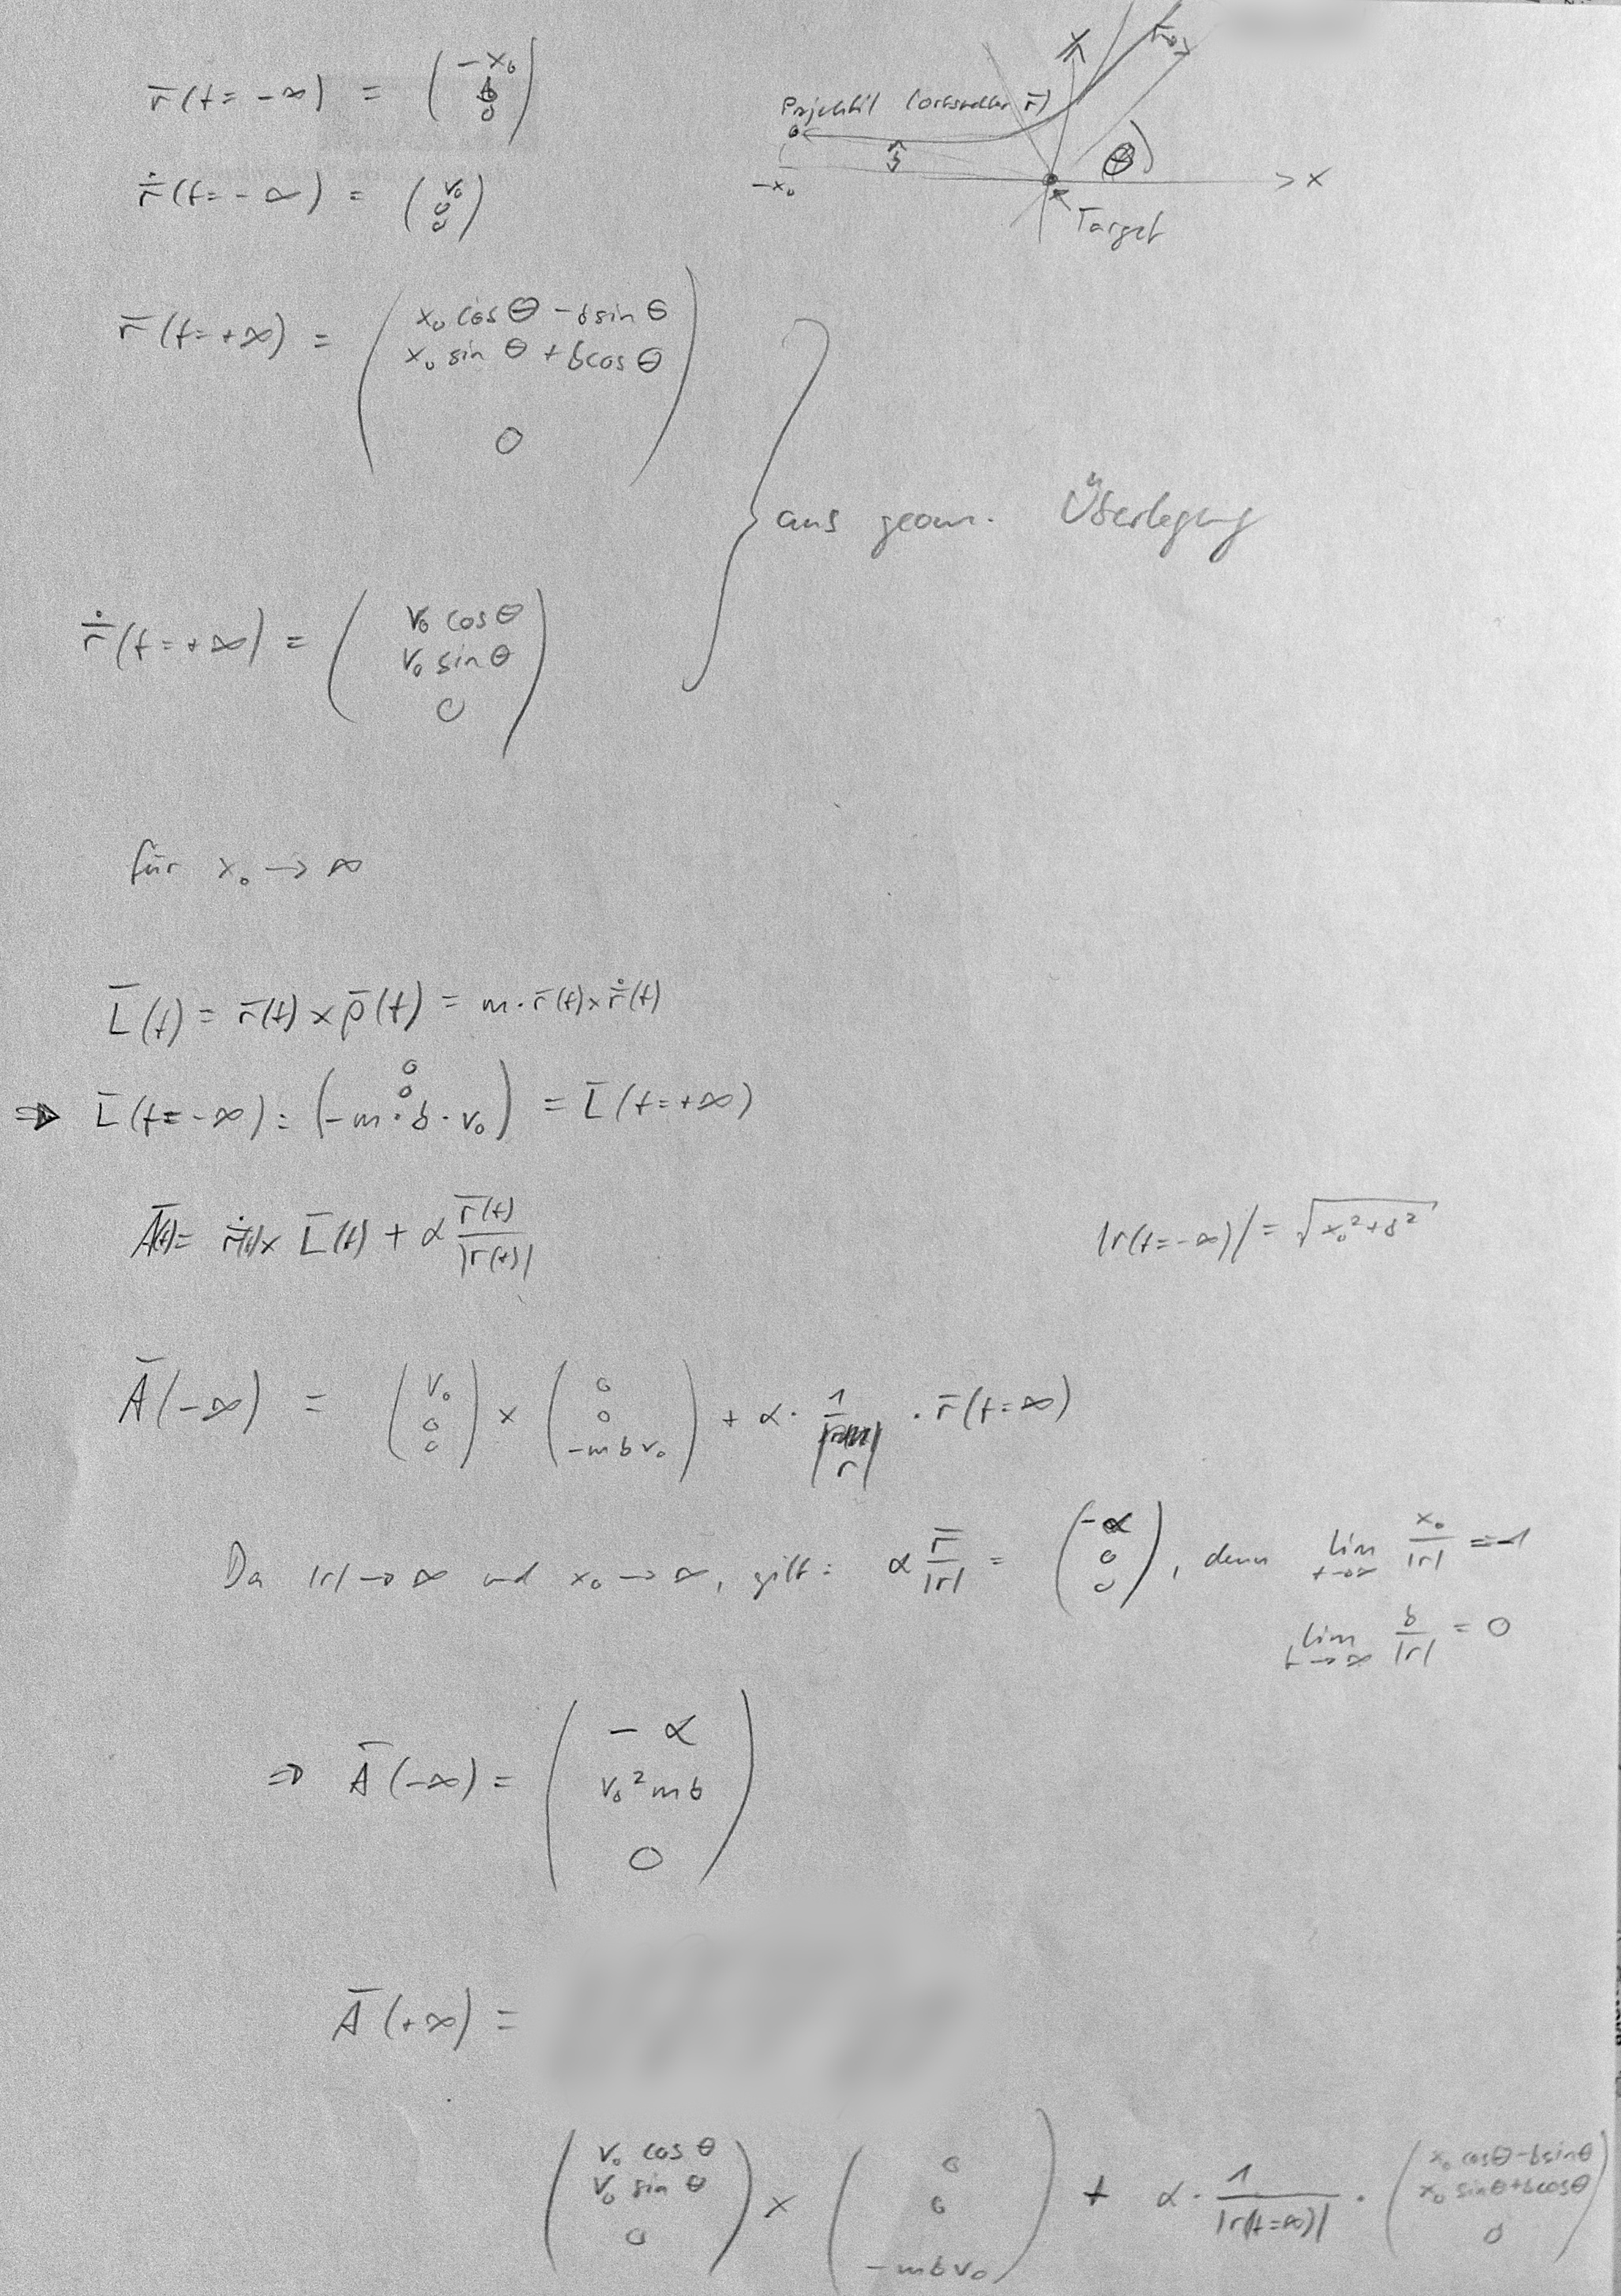 r̄(t=-∞) = (-x₀ b 0)
Projektil (Ortsvektor r̄)
b
-x₀
Θ
> x
Target
ṙ̄(t=-∞) = (v₀ 0 0)
r̄(t=+∞) = (x₀ cos Θ - b sin Θ
x₀ sin Θ + b cos Θ
0)
aus geom. Überlegung
ṙ̄(t=+∞) = (v₀ cos Θ
v₀ sin Θ
0)
für x₀ → ∞
L̄(t) = r̄(t) × p̄(t) = m · r̄(t) × ṙ̄(t)
⇒ L̄(t=-∞) = (0 0 -m·b·v₀) = L̄(t=+∞)
Ā(t) = ṙ̄(t) × L̄(t) + α r̄(t)/|r(t)|
|r(t=-∞)| = √(x₀² + b²)
Ā(-∞) = (v₀ 0 0) × (0 0 -m b v₀) + α · 1/|r| · r̄(t=∞)
Da |r| → ∞ und x₀ → ∞, gilt: α r̄/|r| = (-α 0 0), denn lim t→∞ x₀/|r| = -1
lim t→∞ b/|r| = 0
⇒ Ā(-∞) = (-α
v₀² m b
0)
Ā(+∞) =
(v₀ cos Θ v₀ sin Θ 0) × (0 0 -m b v₀) + α · 1/|r(t=∞)| · (x₀ cosΘ - b sinΘ x₀ sinΘ + b cosΘ 0)